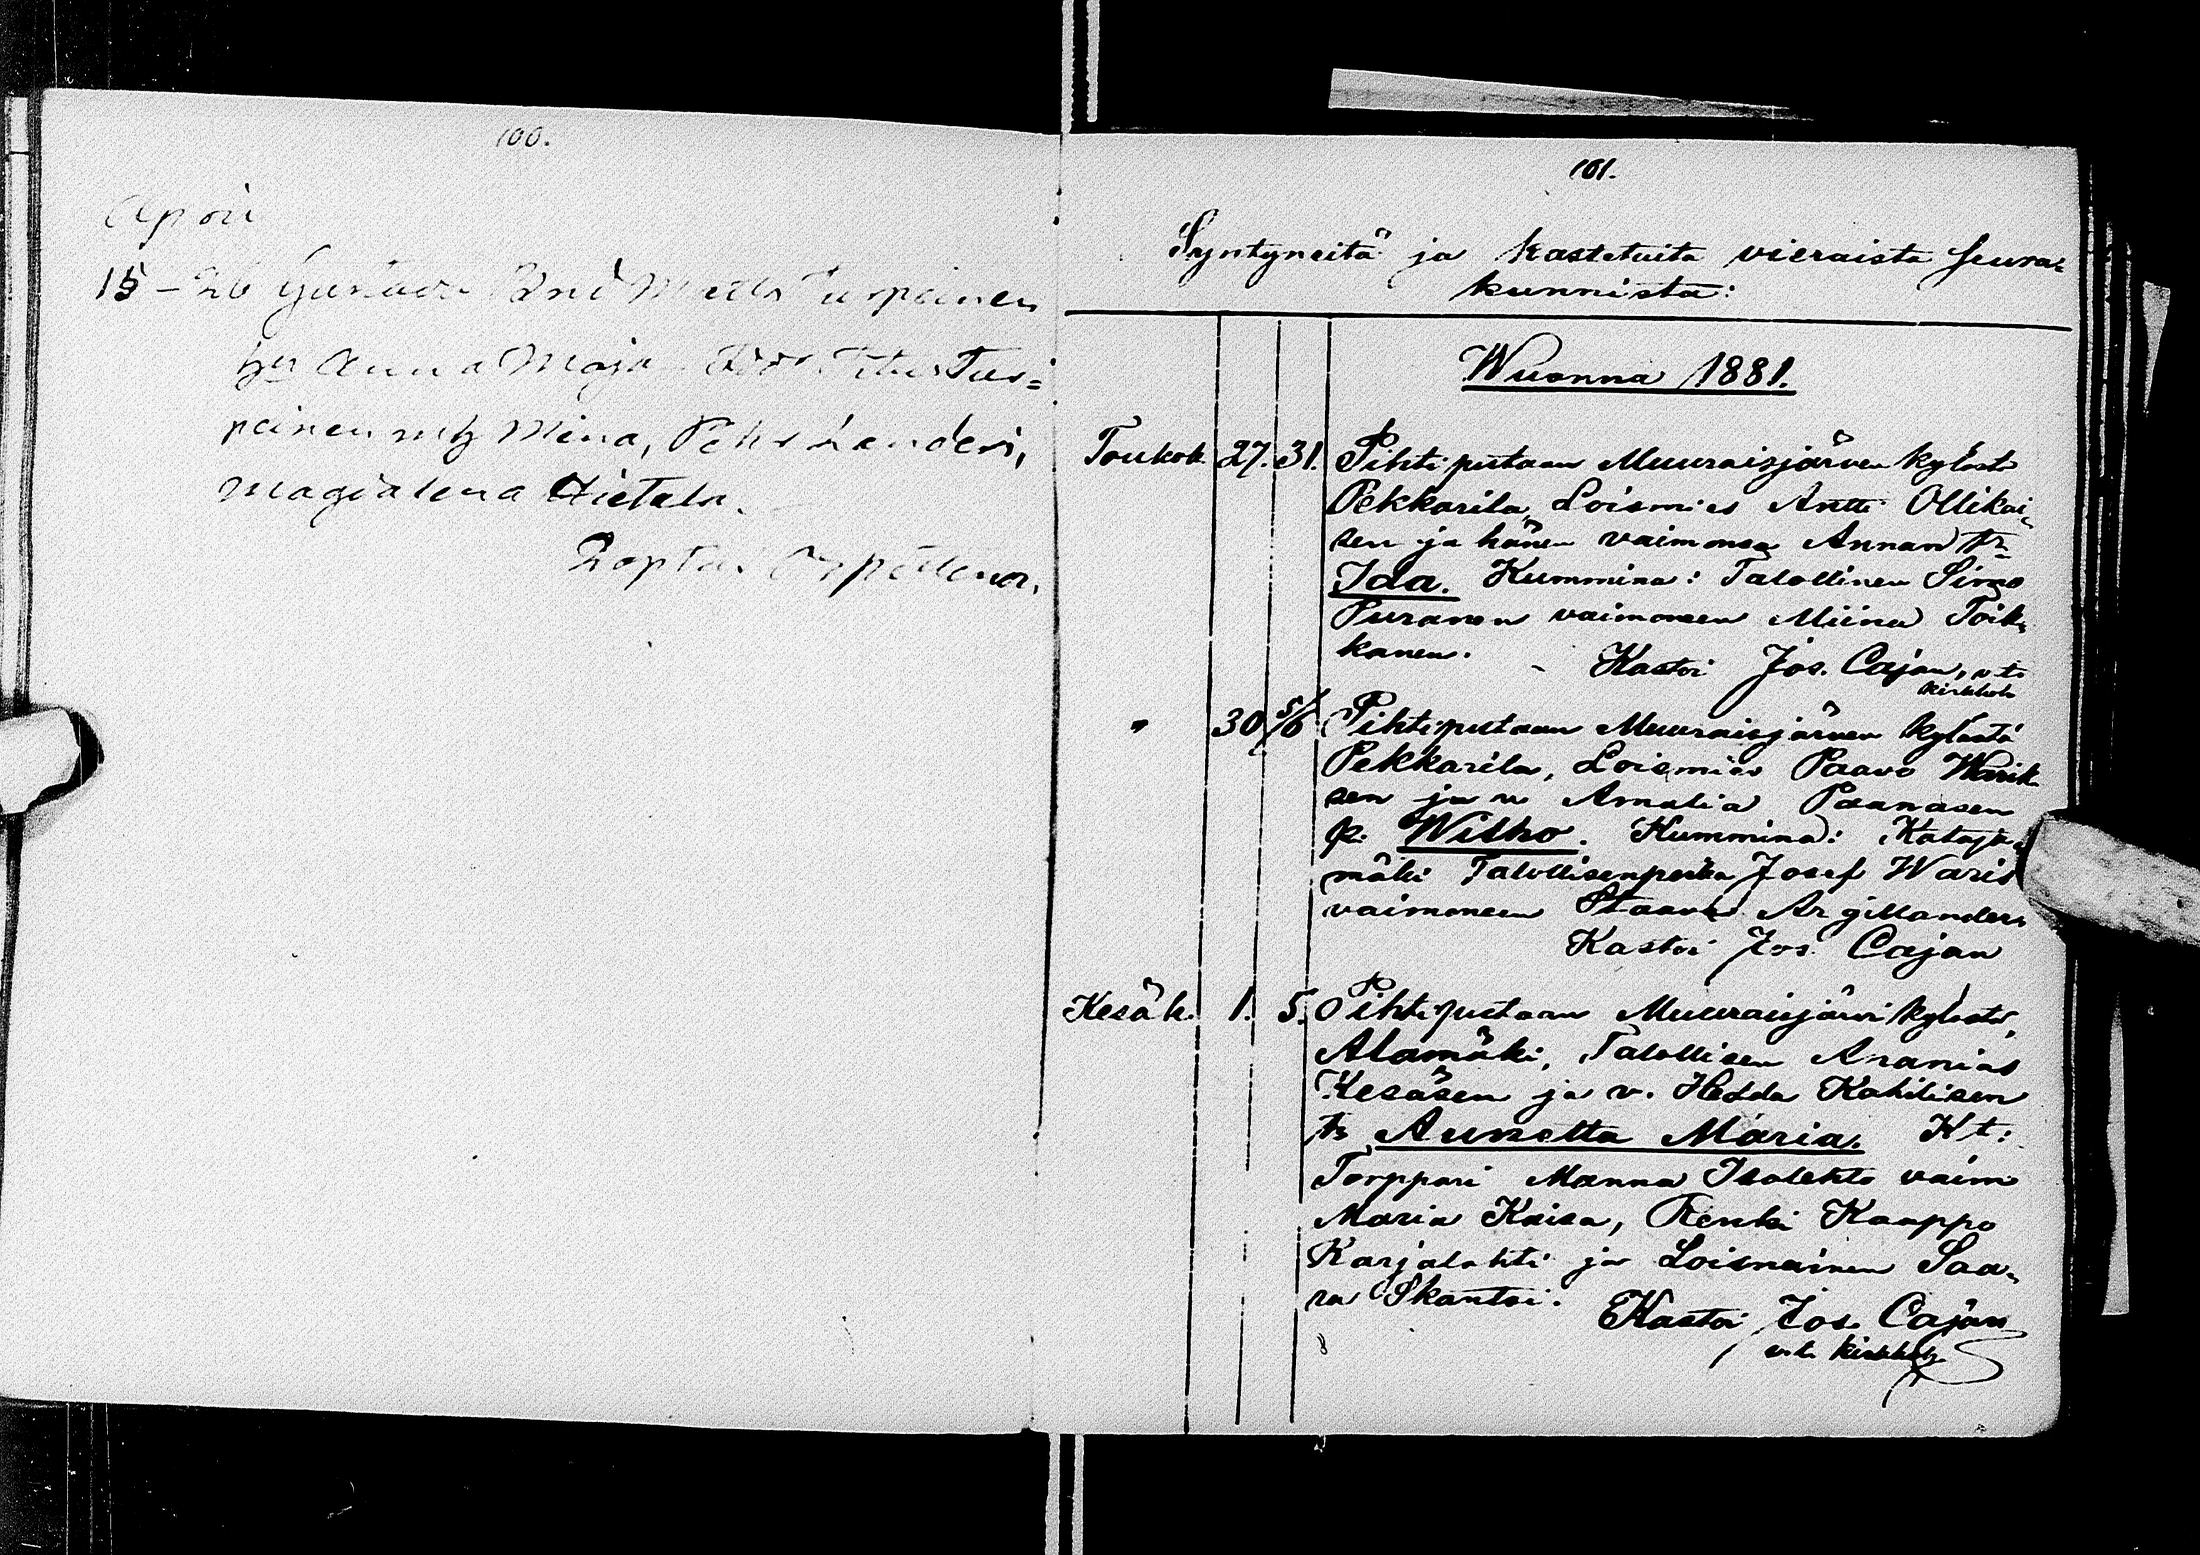 100.
April
15 – 26 Gustava Bnd Matts Turpeinen
h. Anna Maja. Titus Tur=
peinen m h Mina, Pehr Landén,
Magdalena Hietala.
101.
Syntyneitä ja kastetuita vieraista seura=
kunnista:
Wuonna 1881.
Toukok. 27. 31. Pihtiputaan Muuraisjärven kylästä
Pekkarila, Loismies Antti Ollikai=
sen ja hänen vaimonsa Annan tr=
Ida. Kummina: Talollinen Simo
Puranen vaimoneen Miina Toik=
kanen. – Kastoi Jos. Cajan, v.t.
kirkkoh
" 30 5/6 Pihtiputaan Muuraisjärven kylästä
Pekkarila, Loismies Paavo Warik
sen ja v Amalia Paanasen
p. Wilho. Kummina: Kataja=
mäki Talollisenpoika Josef Waris
vaimoneen Staava Argillander.
Kastoi Jos. Cajan
Kesäk. 1. 5. Pihtiputaan Muuraisjärvi kylästä,
Alamäki, Talollisen Ananias
Kesäsen ja v. Hedda Kahilisen
tr Aunetta Maria. Kt:
Torppari Manna Isolehto vaim
Maria Kaisa, Renki Kaappo
Karjalahti ja Loisnainen Saa=
ra Skantsi.
Kastoi Jos. Cajan
v.t. kirkkoh